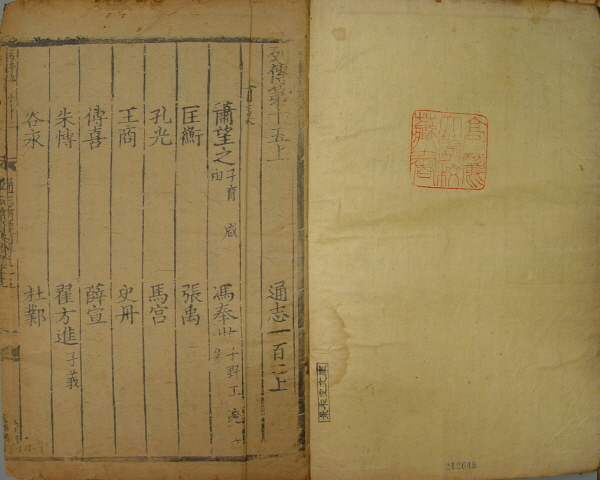 列傳第十五上
通志一百二上
前漢
蕭望之 子育 咸 由
馮奉世 子野王 逡 立
匡衡
張禹
孔光
馬宮
王商
史丹
傅喜
薛宣
朱博
翟方進 子義
谷永
杜鄴
212645